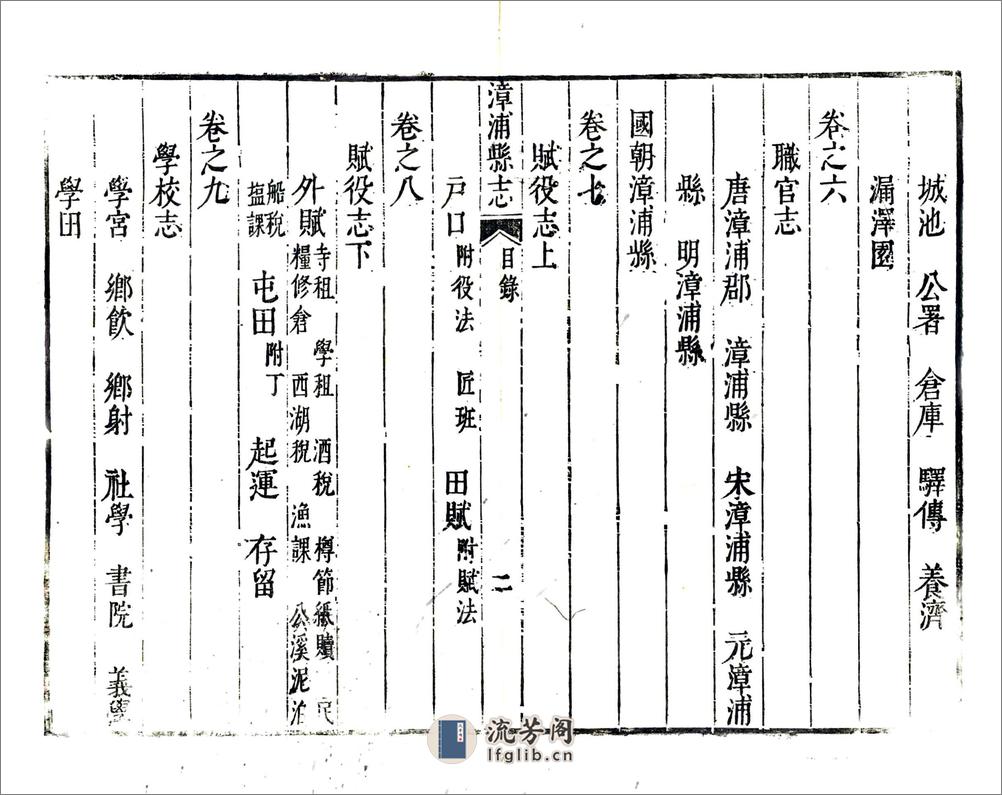 城池 公署 倉庫 驛傳 養濟
漏澤園
卷之六
職官志
唐漳浦郡 漳浦縣 宋漳浦縣 元漳浦
縣 明漳浦縣
國朝漳浦縣
卷之七
賦役志上
漳浦縣志 目錄 二
戶口 附役法 匠班 田賦 附賦法
卷之八
賦役志下
外賦 寺租 學租 酒稅 樽節紙贖
糧修倉 西湖稅 漁課 公溪泥泊
船稅
塩課 屯田 附丁 起運 存留
卷之九
學校志
學宮 鄉飲 鄉射 社學 書院 義學
學田
流芳阁
lfglib.cn